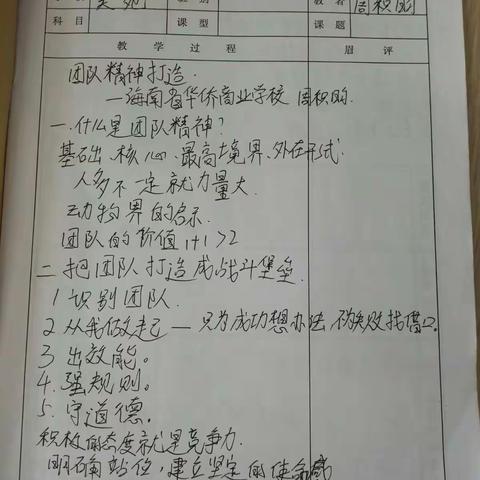 教者 周积
科目 课型 课题
教学过程 眉评
团队精神打造.
—海南省华侨商业学校 周积
一.什么是团队精神?
基础、核心、最高境界、外在形式.
人多不一定就力量大.
动物界的启示.
团队的价值 1+1>2
二 把团队打造成战斗堡垒.
1 识别团队.
2 从我做起 — 只为成功想办法,不为失败找借口.
3 出效能。
4. 强规则。
5. 守道德.
积极的态度就是竞争力.
明确站位,建立坚定的使命感